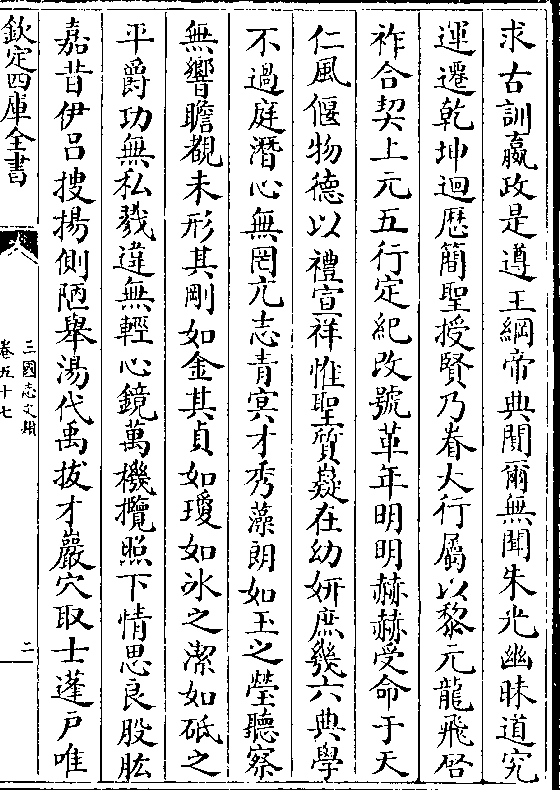 求古訓嬴政是遵王綱帝典闃爾無聞朱光幽昧道究
運遷乾坤迴歴簡聖授賢乃眷大行屬以黎元龍飛啓
祚合契上元五行定紀改號革年明明赫赫受命于天
仁風偃物德以禮宣祥惟聖質嶷在幼妍庶幾六典學
不過庭潛心無罔亢志青冥才秀藻朗如玉之瑩聽察
無響瞻覩未形其剛如金其貞如瓊如冰之潔如砥之
平爵功無私戮違無輕心鏡萬機攬照下情思良股肱
嘉昔伊吕搜揚側陋舉湯代禹拔才巖穴取士蓬戸唯
欽定四庫全書
三國志文類
卷五十七
二